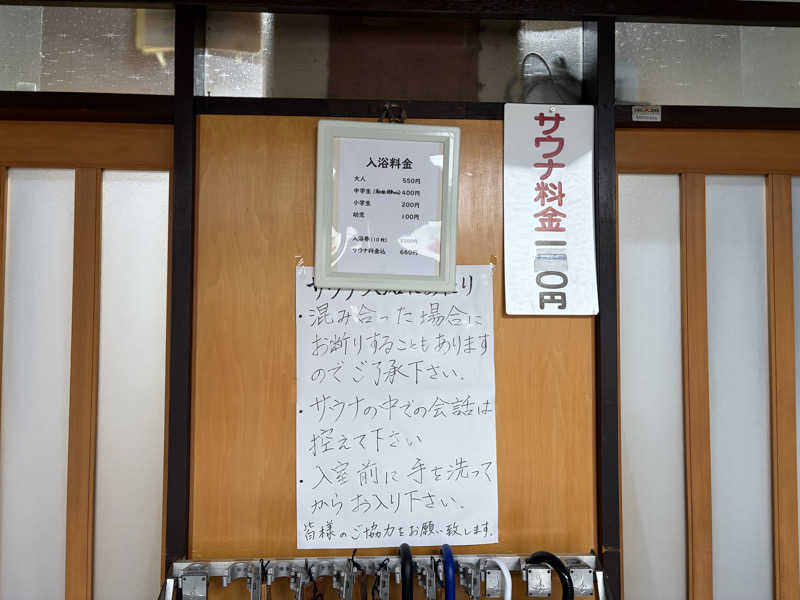 入浴料金
大人 550円
中学生 400円
小学生 200円
幼児 100円
入浴券(10枚)
サウナ料金込 660円
サウナ料金
一 〇円
・混み合った場合に
お断りすることもあります
のでご了承下さい.
・サウナの中での会話は
控えて下さい
・入室前に手を洗って
からお入り下さい.
皆様のご協力をお願い致します.